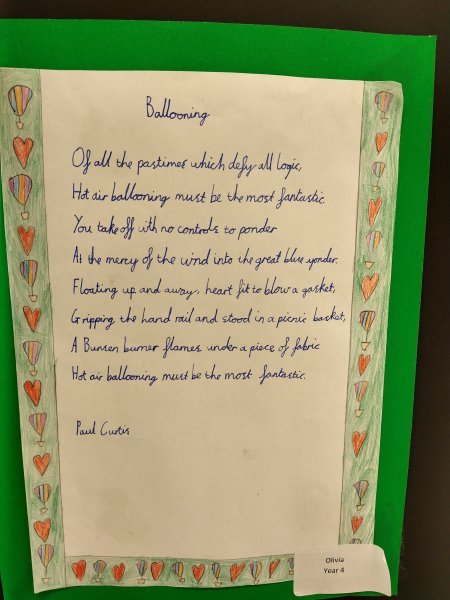 Ballooning
Of all the pastimes which defy all logic,
Hot air ballooning must be the most fantastic.
You take off with no controls to ponder
At the mercy of the wind into the great blue yonder.
Floating up and away, heart fit to blow a gasket,
Gripping the hand rail and stood in a picnic basket,
A Bunsen burner flames under a piece of fabric
Hot air ballooning must be the most fantastic.
Paul Curtis
Olivia
Year 4